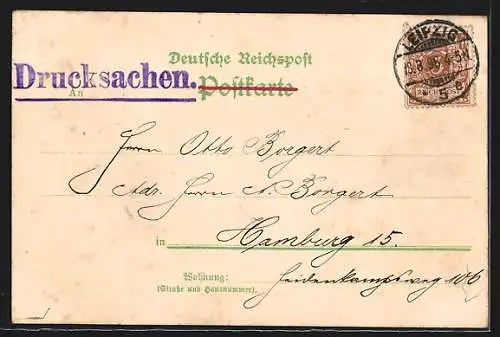 LEIPZIG
5 e
REICHSPOST
Deutsche Reichspost
Drucksachen.
An
Postkarte
Herrn Otto Borgert
Adr. Herrn N. Borgert
in Hamburg 15.
Wohnung: Heidenkampsweg 106
(Straße und Hausnummer).